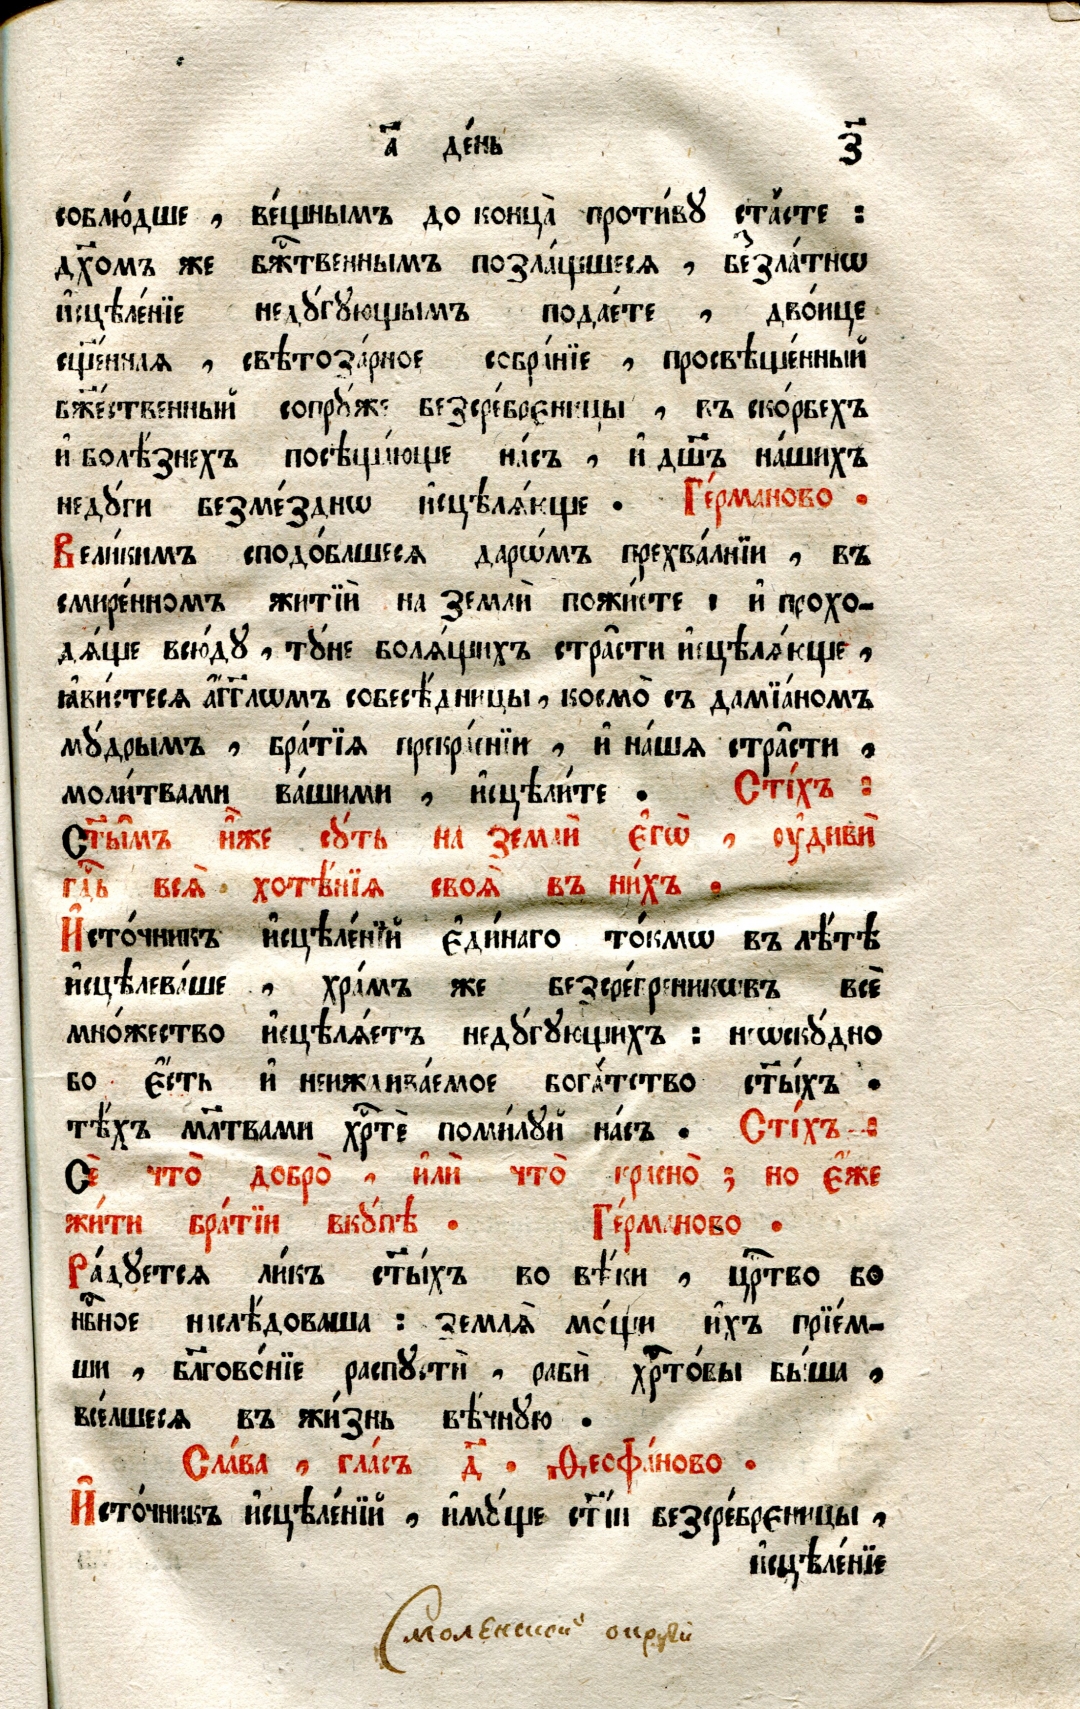 а҃ де́нь з҃
соблю́дше , ве́щнымъ до конца̀ проти́вꙋ ста́сте :
дх҃омъ же бж҃твеннымъ позла́щшеся , бе́златнѡ
и҆сцѣле́нїе недꙋ́гꙋющымъ подае́те , дво́ице
сщ҃е́нная , свѣтоза́рное собра́нїе , просвѣще́нный
бж҃е́ственный сопрꙋ́же безсре́бреницы , въ ско́рбехъ
и҆ болѣ́знехъ посѣща́юще на́съ , и҆ дш҃ъ на́шихъ
недꙋ́ги безме́зднѡ и҆сцѣля́юще . Ге́рманово .
Вели́кимъ сподо́блшеся дарѡ́мъ прехва́лнїи , въ
смире́нномъ житїи̑ на земли̑ пожи́сте , и҆ прохо-
дя́ще всю́дꙋ , тꙋ́не боля́щихъ стра̑сти и҆сцѣля́юще ,
ꙗ҆ви́стеся а҆́гг҃лѡмъ собесѣ́дницы , космо̀ съ дамїа́номъ
мꙋ́дрымъ , бра́тїя прекра́снїи , и҆ на́шя стра̑сти ,
моли́твами ва́шими , и҆сцѣли́те . Сті́хъ :
Ст҃ы̑мъ и҆̀же сꙋ́ть на земли̑ є҆гѡ̀ , оу҆диви̑
гд҃ь вся̑ . хотѣ́нїя своя̑ въ ни́хъ .
И҆сто́чникъ и҆сцѣле́нїй є҆ди́наго то́кмѡ въ лѣ́тѣ
и҆сцѣлева́ше , хра́мъ же безсре́бреникѡвъ все̑
мно́жество и҆сцѣля́етъ недꙋ́гꙋющихъ : неѡскꙋдно
бо є҆́сть и҆ неиждива́емое бога́тство ст҃ы́хъ .
тѣ́хъ мл҃твами хр҃те̑ поми́лꙋй на́съ . Сті́хъ :
Се̑ что̀ добро̀ , и҆ли̑ что̀ красно̀ ; но є҆́же
жи́ти бра́тїи вкꙋ́пѣ . Ге́рманово .
Ра́дꙋется ли́къ ст҃ы́хъ во вѣ́ки , цр҃тво бо
нб҃ное наслѣ́доваша : земля̑ мо́щи и҆́хъ прїе́м-
ши , бл҃гово́нїе распꙋсти̑ , раби̑ хр҃то́вы бы́ша ,
все́лшеся въ жи́знь вѣ́чнꙋю .
Сла́ва , гла́съ д҃ . Ѳеофа́ново .
И҆сто́чникъ и҆сцѣле́нїй , и҆мꙋ́ще ст҃і́и безсре́бреницы ,
и҆сцѣле́нїе
Смоленской округи